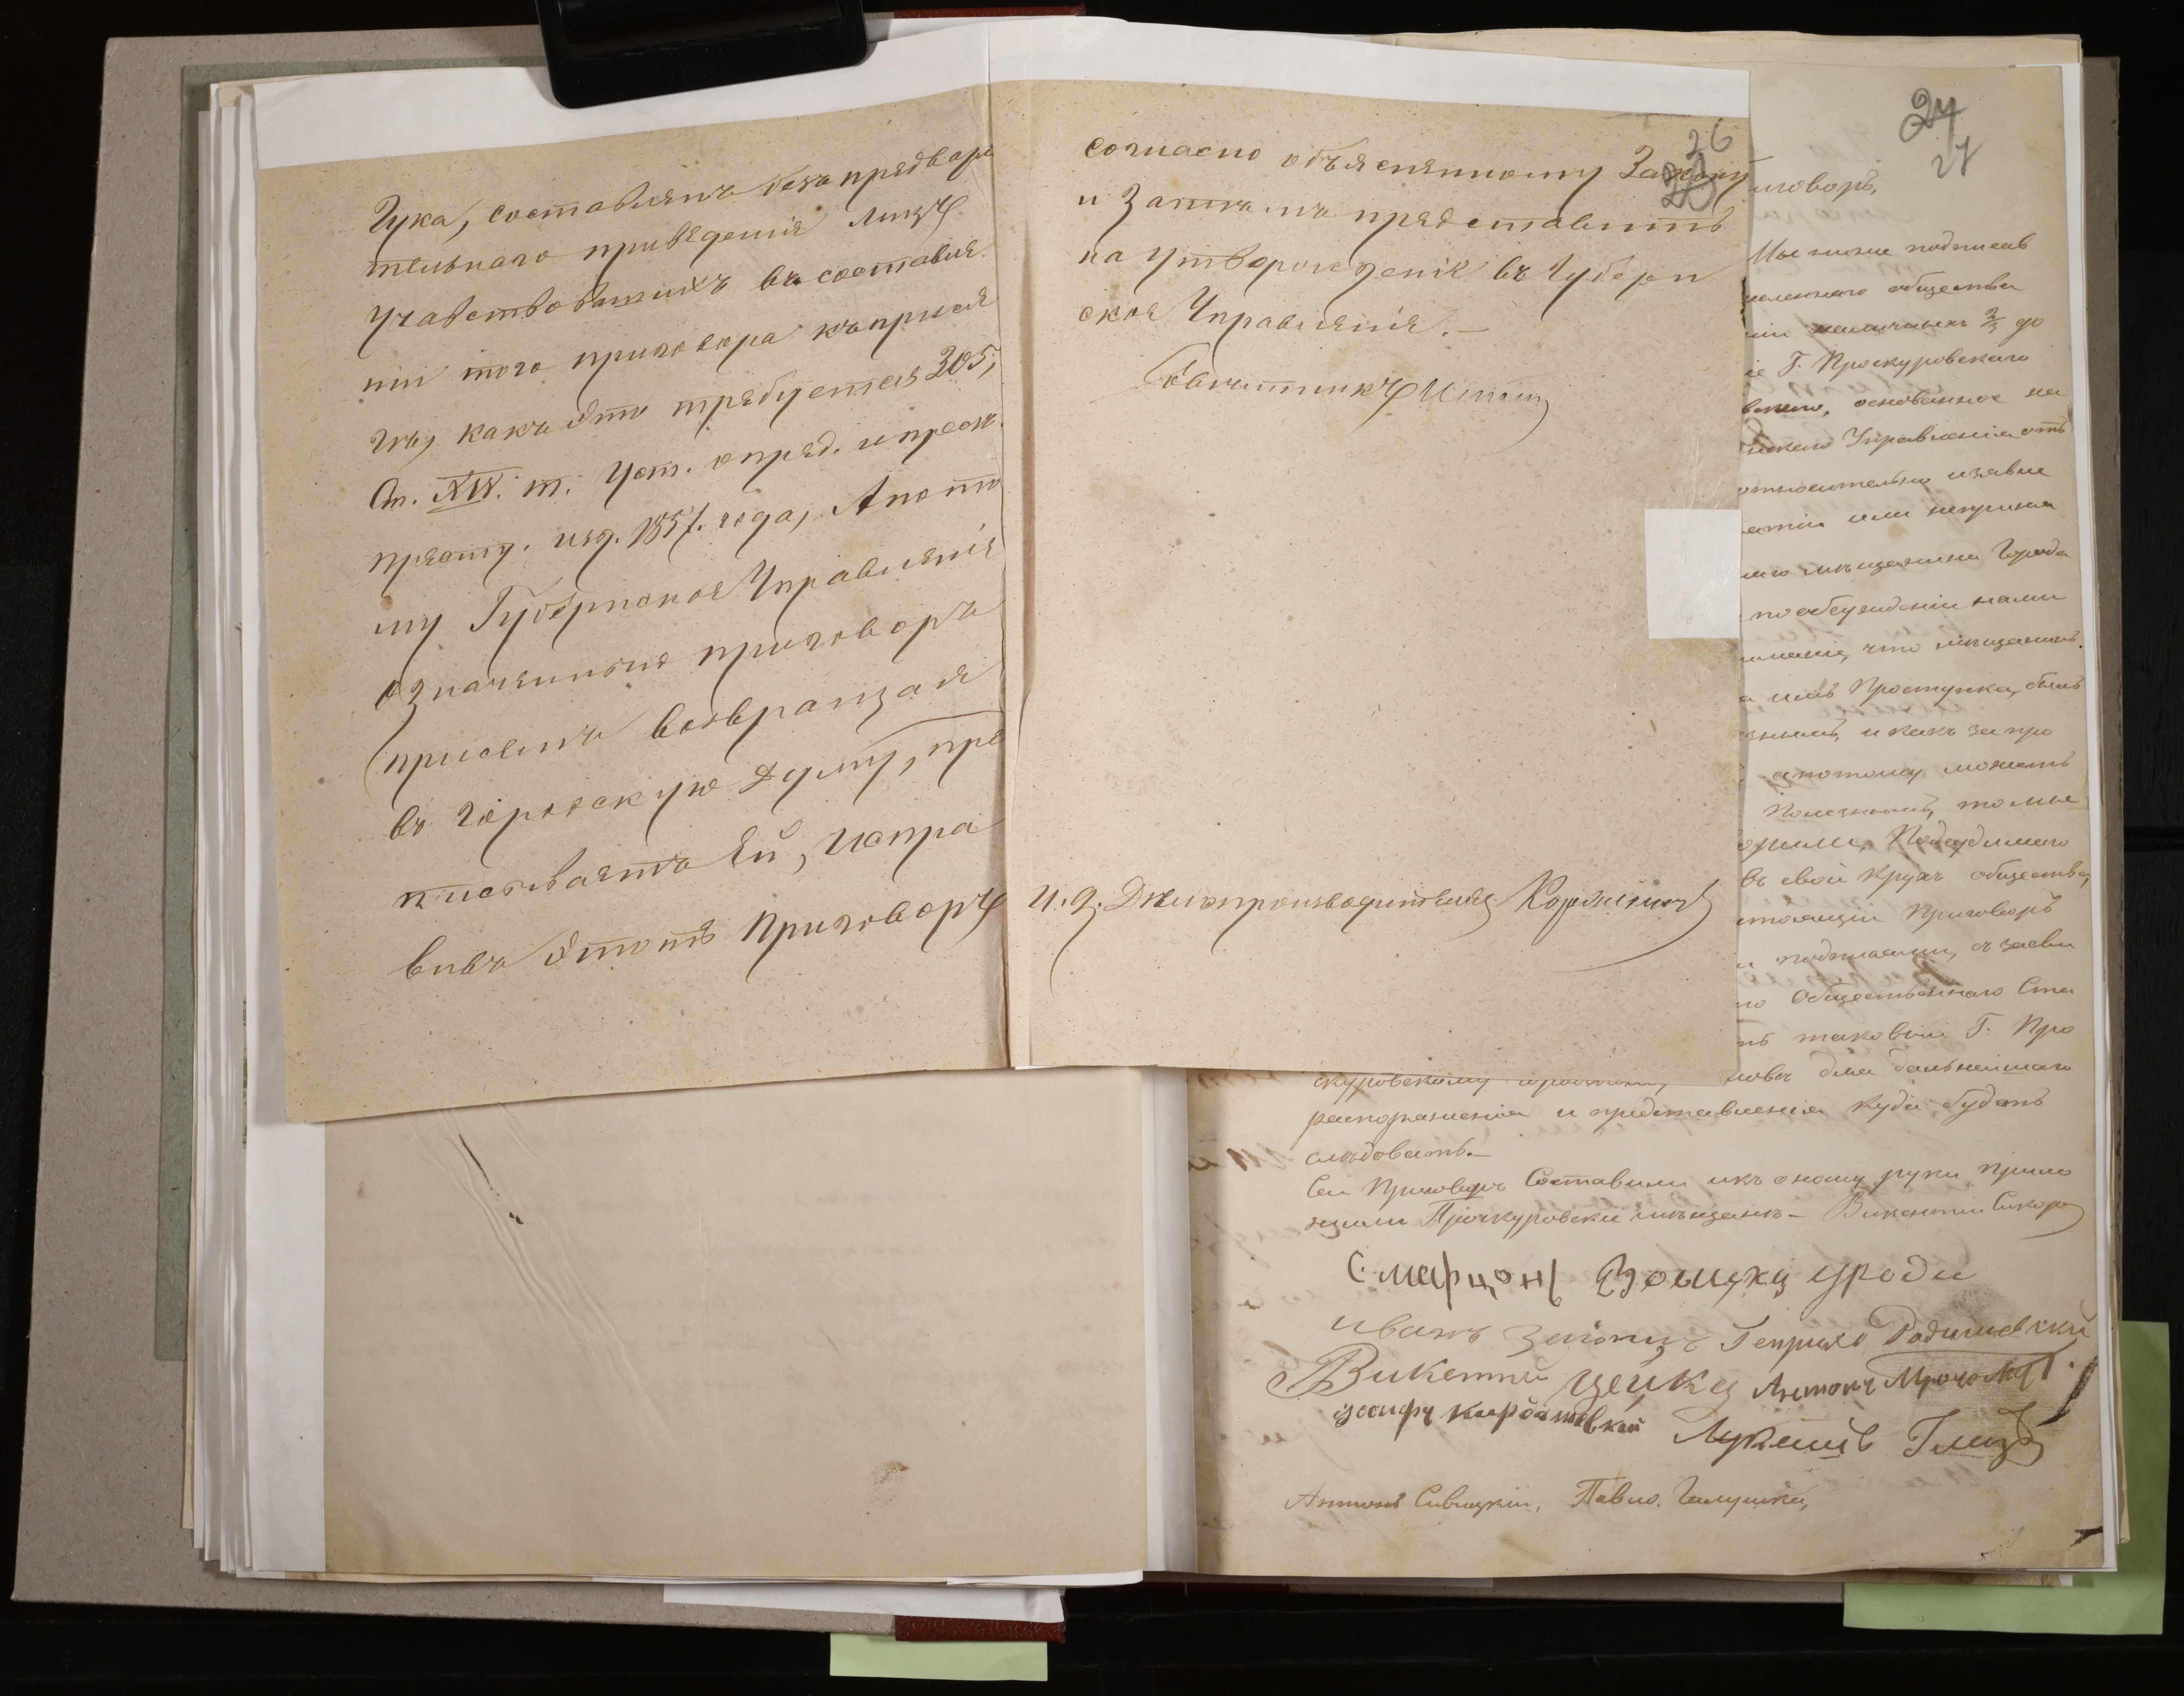 Гука, составленъ безъ предвари
тельнаго приведенія лицъ
участвовавшихъ въ составле
ніи того приговора къ прися
гѣ, какъ это требуется 205,
Ст. XIV. т. Уст. о пред. и пресѣч.
преступ. изд. 1857. года, А по то
му Губернское Управленіе
означенный приговоръ
при семъ возвращая
въ городскую думу, пред
писываетъ Ей, испра
вивъ этотъ приговоръ
26
согласно объясненному Закону
и Затѣмъ представить
на утвержденіе въ Губерн
ское Управленіе.—
Совѣтникъ
И. д. Дѣлопроизводителя
27
27
иговоръ,
Мы ниже подписав
общества
наличныхъ 2/3 до
іе Г. Проскуровскаго
основанное на
Управленія отъ
относительно изъявле
или неприня
мѣщанина Города
по обсужденіи нами
что мѣщанинъ
Проступка, былъ
и какъ за про
а потому можетъ
полезнымъ, то мы
Подсудимаго
въ свой кругъ общества,
стоящій Приговоръ
подписали, съ засви
Общественнаго Ста
таковый Г. Про
скуровскому для дальнейшаго
распоряженія и представленія куда будетъ
слѣдовать.—
Сей Приговоръ Составили икъ оному руки прило
жили Проскуровскіе мѣщане— Викентий Сикора
иванъ Генрихъ Радишевский
Викентий Цейка Антонъ
иосифъ
Антонъ Савицкій, Павло Галушка,